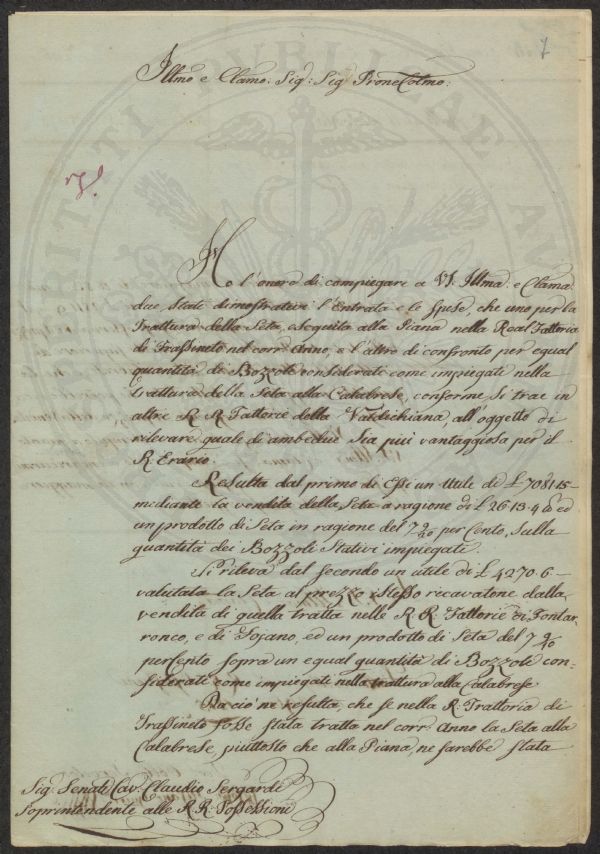 7
Illmo e Clamo: Sig: Sig Prone Colmo:
Ho l'onore di compiegare a VS. Illma: e Clama:
due Stati dimostrativi l'Entrata e le Spese, che uno per la
Trattura della Seta, eseguita alla Piana nella Real Fattoria
di Frassineto nel corr. Anno, e l'altro di confronto per egual
quantità di Bozzoli considerati come impiegati nella
trattura della Seta alla Calabrese, conforme si trae in
altre R. R. Fattorie della Valdichiana, all'oggetto di
rilevare quale di ambedue sia più vantaggiosa per il
R. Erario.
Resulta dal primo di Essi un Utile di £ 7081.15 -
mediante la vendita della Seta a ragione di £ 26.13.4 ed
un prodotto di Seta in ragione del 7 per Cento, sulla
quantità dei Bozzoli Stativi impiegati.
Si rileva dal secondo un utile di £ 4270.6 -
valutata la Seta al prezzo istesso ricavatone dalla
vendita di quella tratta nelle R. R. Fattorie di Fontar,
ronco, e di Fojano, ed un prodotto di Seta del 7
perCento sopra un egual quantità di Bozzoli con,
siderati come impiegati nella trattura alla Calabrese.
Da ciò ne resulta, che se nella R. Fattoria di
Frassineto fosse stata tratta nel corr. Anno la Seta alla
Calabrese, piuttosto che alla Piana, ne sarebbe stata
Sig. Senat. Cav. Claudio Sergardi
Soprintendente alle R. R. Possessioni